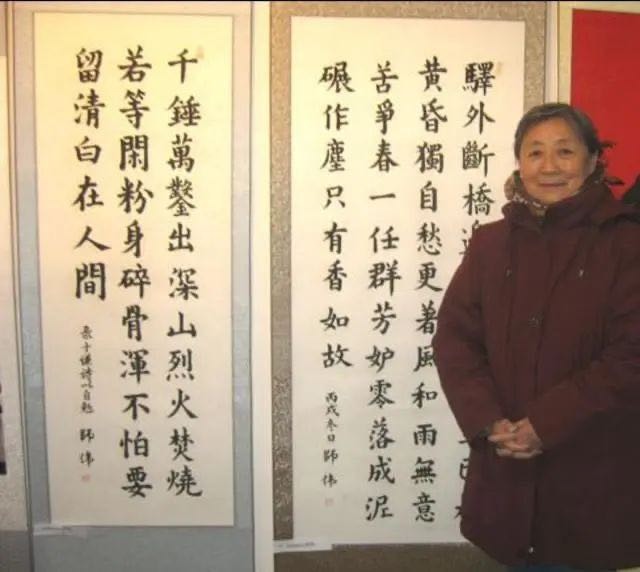 驛外斷橋
黃昏獨自愁更著風和雨無意
苦爭春一任群芳妒零落成泥
碾作塵只有香如故
丙戌冬日 師偉
千錘萬鑿出深山烈火焚燒
若等閑粉身碎骨渾不怕要
留清白在人間
录于谦诗以自勉 師偉